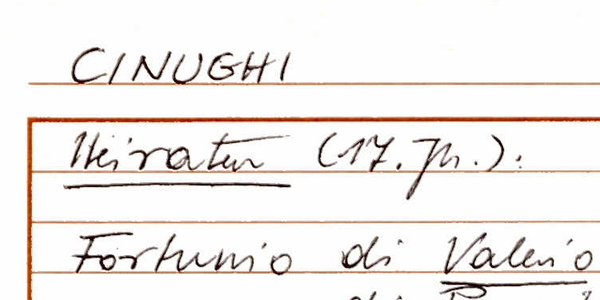 CINUGHI
Heiraten (17. Jh.):
Fortunio di Valerio
di